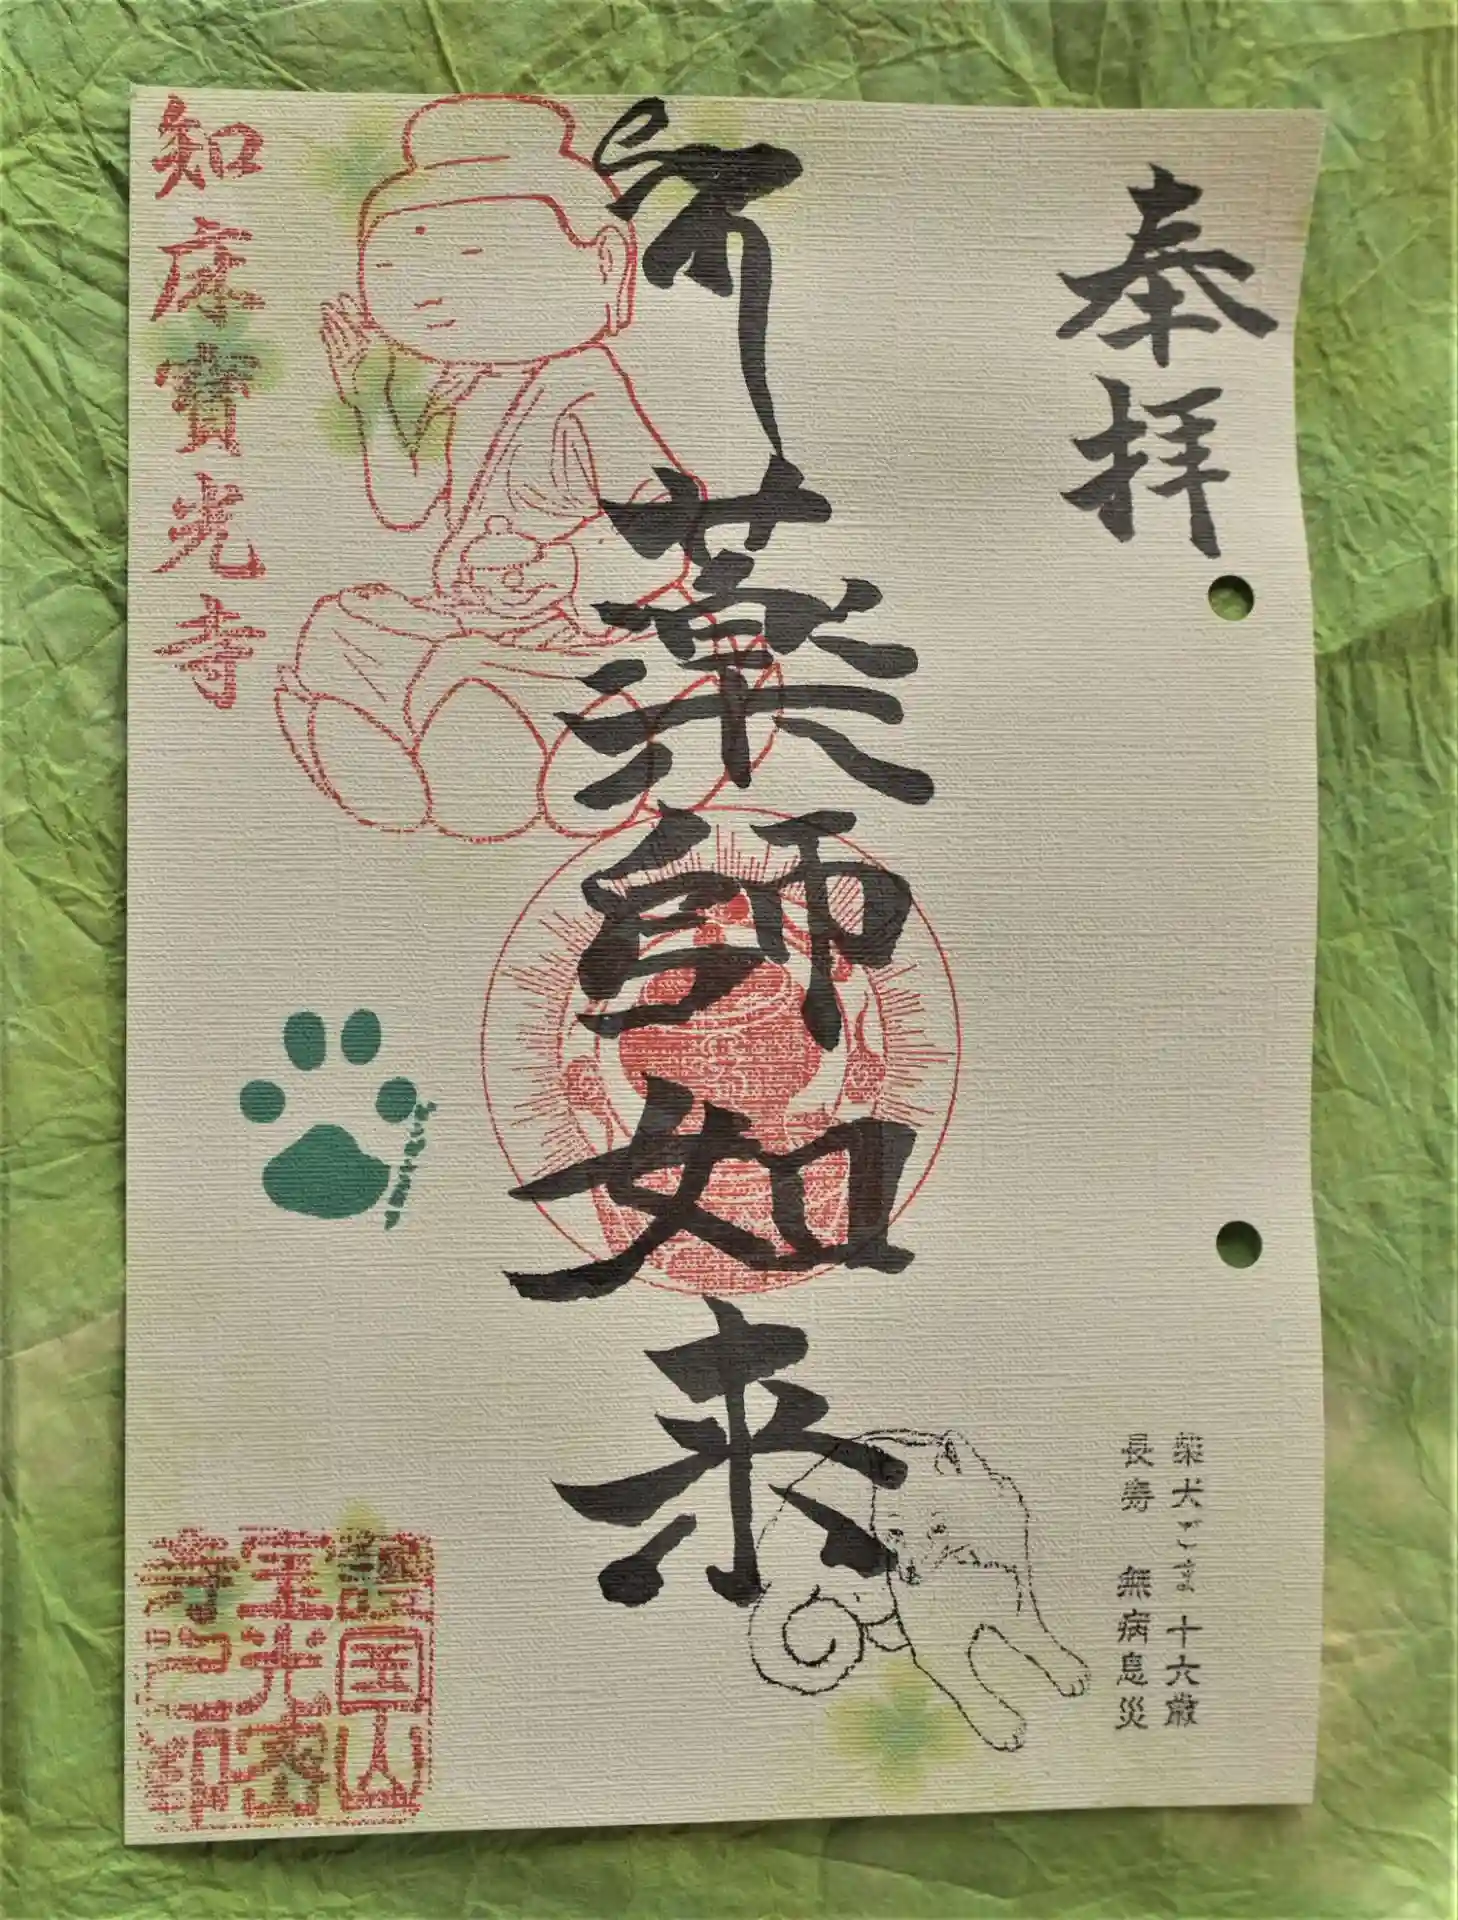 奉拝
薬師如来
知床寶光寺
柴犬ごま 十六歳
長寿 無病息災
護国山
宝光密
寺之印